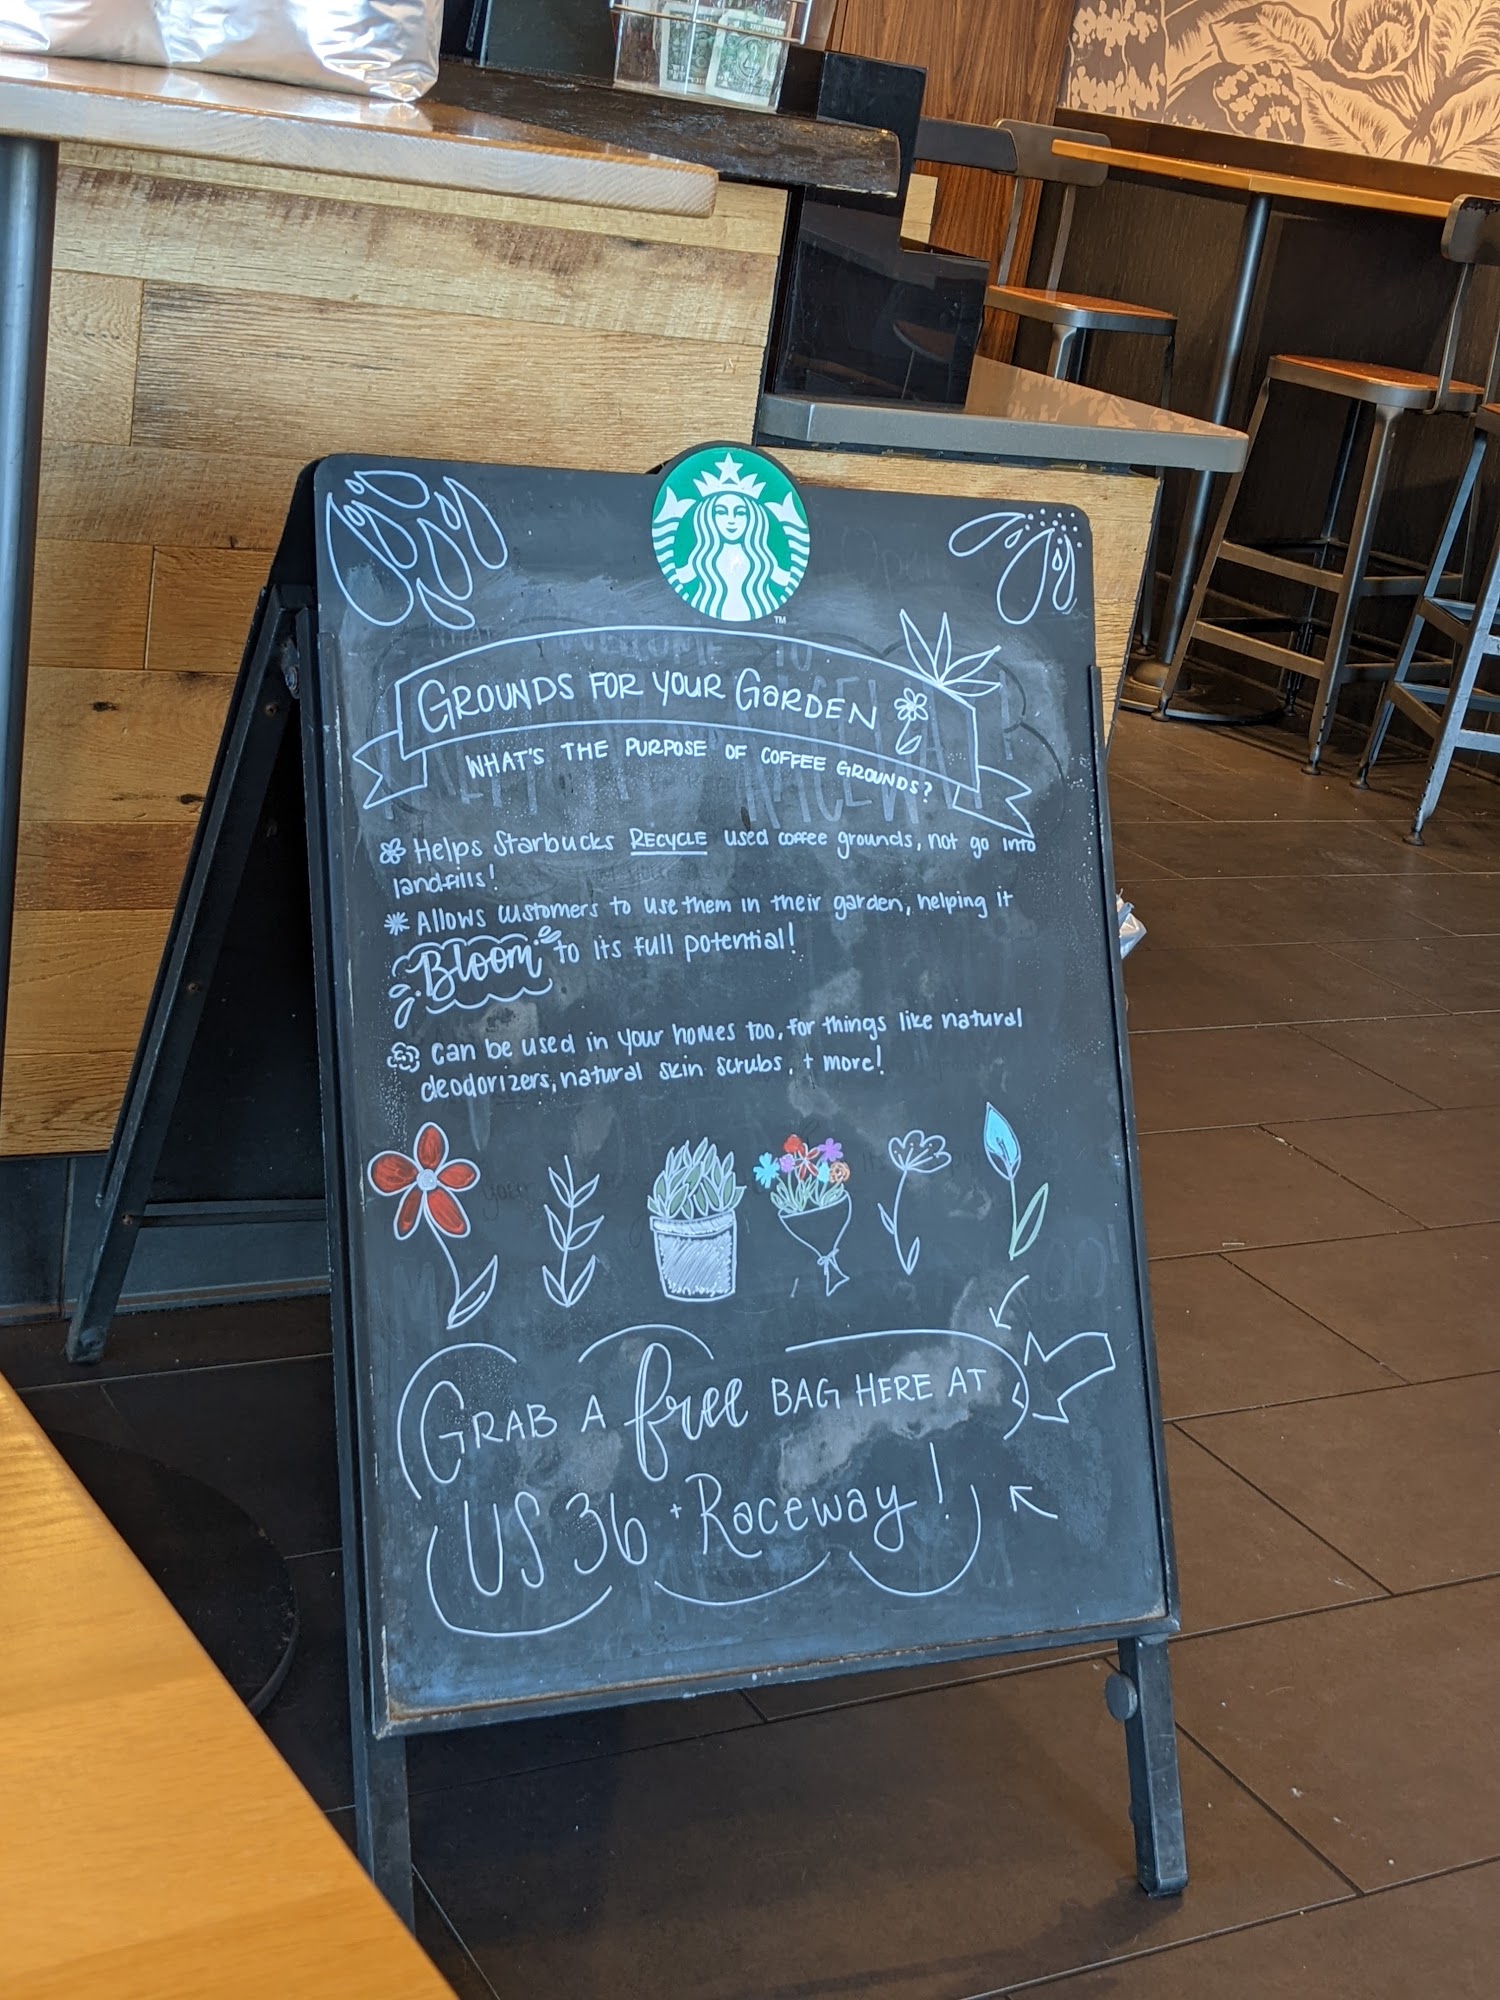 TM
GROUNDS FOR YOUR GARDEN
WHAT'S THE PURPOSE OF COFFEE GROUNDS?
Helps Starbucks RECYCLE used coffee grounds, not go into
landfills!
Allows customers to use them in their garden, helping it
Bloom to its full potential!
can be used in your homes too, for things like natural
deodorizers, natural skin scrubs, + more!
GRAB A free BAG HERE AT
US 36 + Raceway!